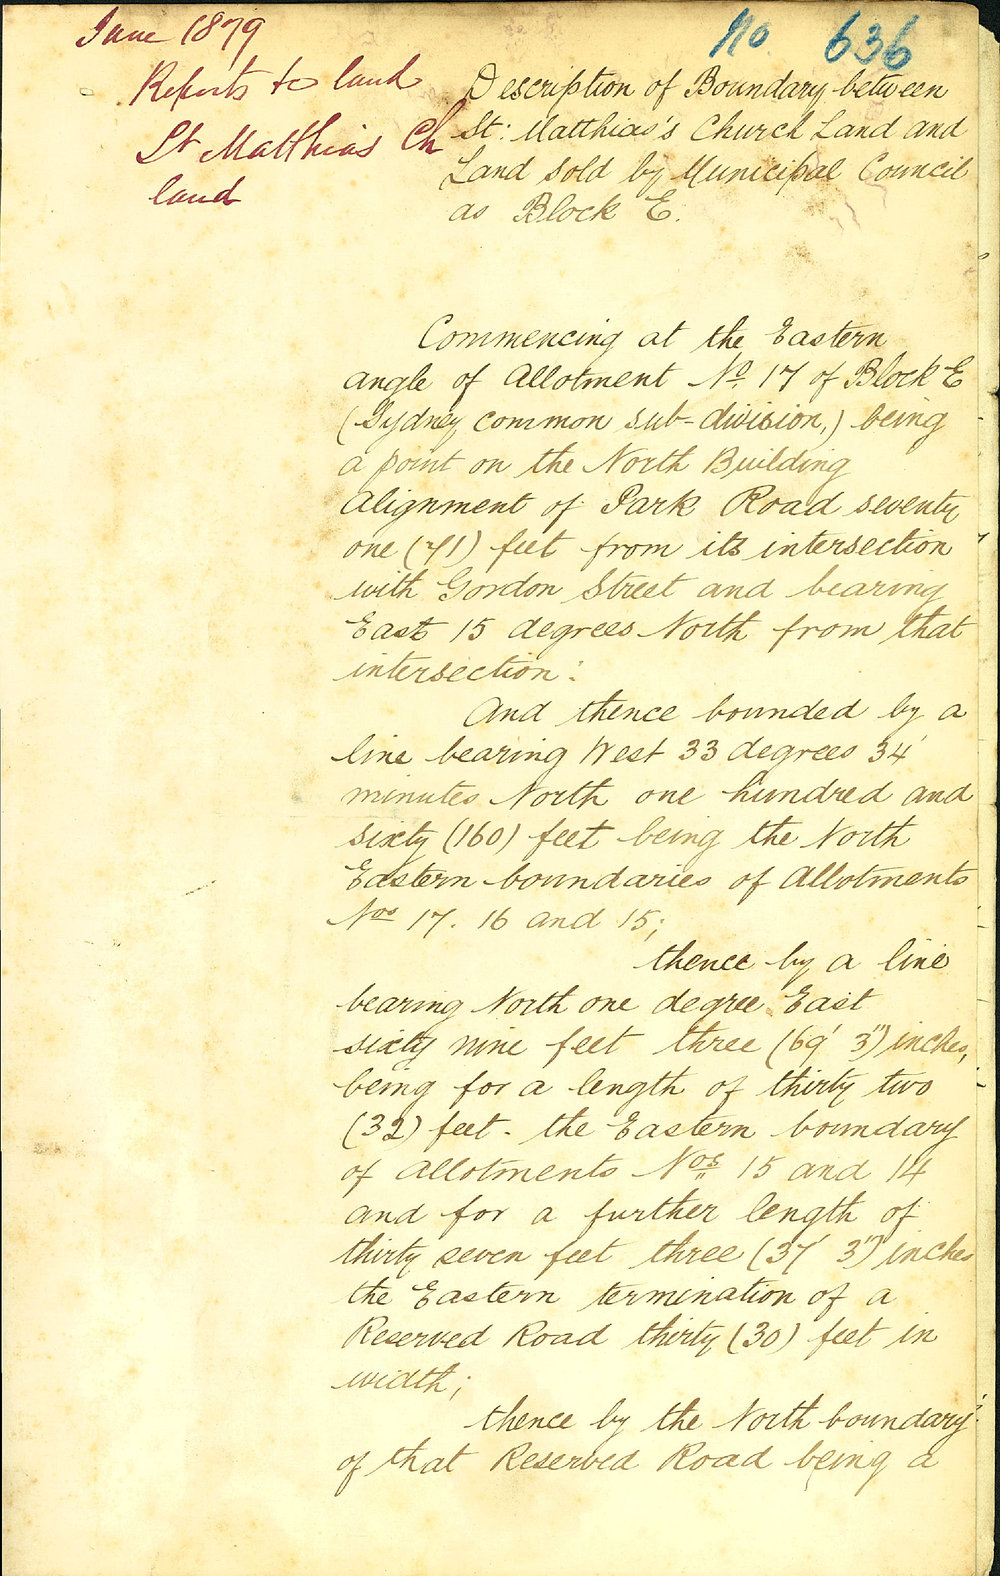 June 1879
Reports to land
St Matthias Ch
land
No 636
Description of Boundary between
St: Matthias's Church Land and
Land sold by Municipal Council
as Block E.
Commencing at the Eastern
angle of Allotment No. 17 of Block E
(Sydney common sub-division,) being
a point on the North Building
Alignment of Park Road seventy
one (71) feet from its intersection
with Gordon Street and bearing
East 15 degrees North from that
intersection:
And thence bounded by a
line bearing West 33 degrees 34
minutes North one hundred and
sixty (160) feet being the North
Eastern boundaries of Allotments
Nos 17. 16 and 15;
thence by a line
bearing North one degree East
sixty nine feet three (69' 3") inches,
being for a length of thirty two
(32) feet - the Eastern boundary
of allotments Nos 15 and 14
and for a further length of
thirty seven feet three (37' 3") inches
the Eastern termination of a
Reserved Road thirty (30) feet in
width;
thence by the North boundary
of that Reserved Road being a